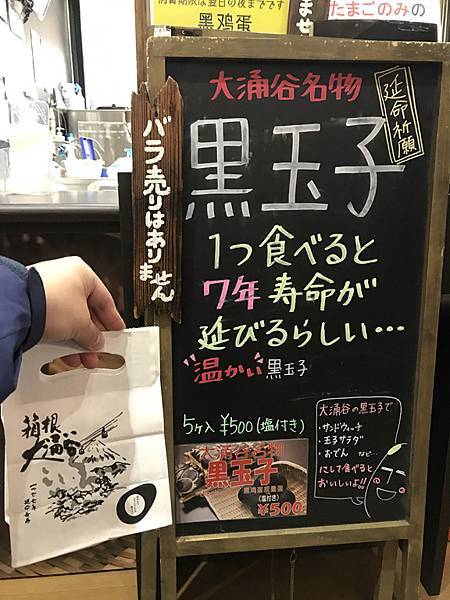 消費期限は翌日の夜までです
黑鸡蛋
ませ
たまごのみの
大涌谷名物
延命祈願
黒玉子
バラ売りはありません
1つ食べると
7年寿命が
延びるらしい…
温かい黒玉子
5ヶ入 ¥500(塩付き)
大涌谷の黒玉子で
・サンドウィッチ
・玉子サラダ
・おでん など…
にして食べると
おいしいよ!!
大涌谷名物
黒玉子
(塩付き)
¥500
箱根
大涌谷